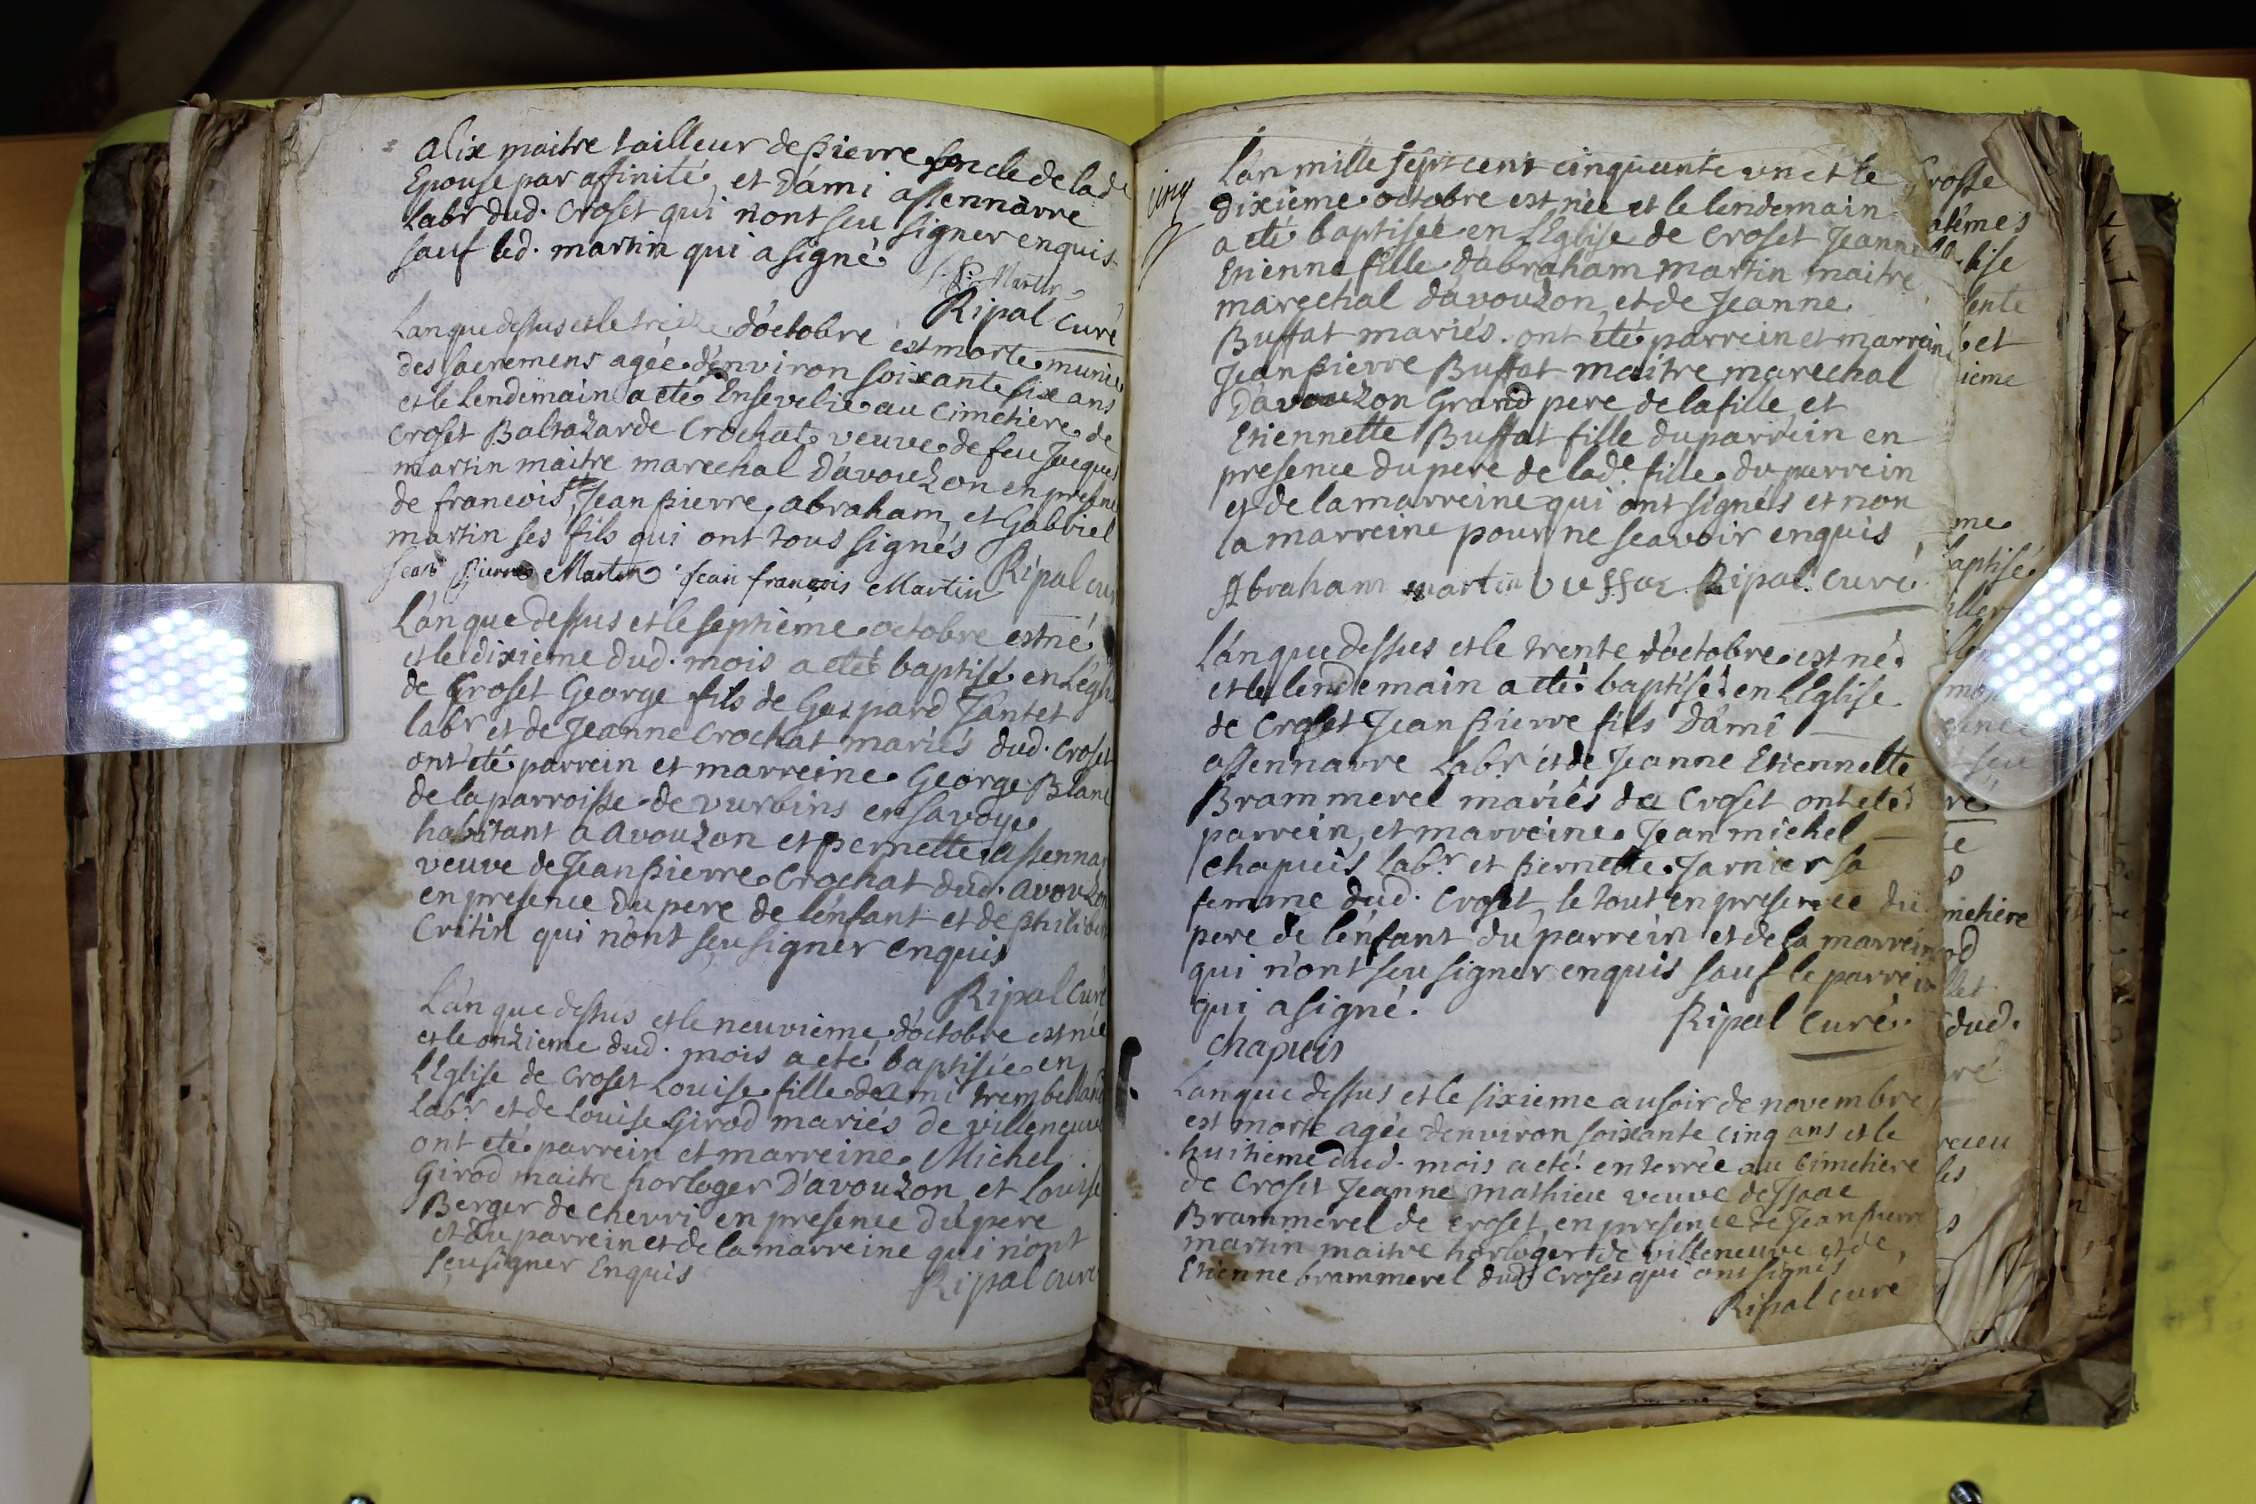 alix maitre tailleur de pierre soncle de lade
Epouse par affinité, et Dámi assennarre
labr dud. Croset qui n'ont seu signer enquis
sauf led. martin qui a signé
Martin
Ripal curé
Lan que dessus et le treize d'octobre est morte munie
des sacremens agée d'environ soixante six ans
et le Lendemain a eté Ensevelie au Cimetière de
Croset Baltazarde Crochat veuve de feu Jacques
martin maitre marechal D'avouzon en presence
de francois, Jean pierre, abraham, et Gabriel
martin ses fils qui ont tous signés
Jean Pierre Martin Jean françois Martin Ripal cur
L'an que dessus et le septième octobre est né
et le dixieme dud. mois a eté baptisé en L'egli
de Croset George fils de Gaspard Jantet
labr et de Jeanne Crochat mariés dud. Croset
ont eté parrein et marreine George Blanc
de la parroisse de vurbins en savoye
habitant a avouzon et pernette assennar
veuve de Jean pierre Crochat dud. avouzon
en presence du pere de lénfant et de philiber
Critin qui n'ont seu signer enquis
Ripal curé
L'an que dessus et le neuvieme d'octobre est née
et le onzieme dud. mois a eté baptisée en
L'Eglise de Croset Louise fille dami trembelland
Labr et de Louise Girod mariés de villeneuve
ont eté parrein et marreine Michel
Girod maitre horloger D'avouzon et Louise
Berger de chevri en presence du pere
et du parrein et de la marreine qui n'ont
seu signer Enquis
Ripal curé
cinq
L'an mille sept cent cinquante un et le
dixieme octobre est née et le lendemain
a eté baptisée en L'Eglise de Croset Jeanne
Etienne fille d'abraham martin maitre
marechal d'avouzon, et de Jeanne
Buffat mariés. ont eté parrein et marreine
Jean pierre Buffat maitre marechal
D'avouzon Grand pere de la fille et
Etiennette Buffat fille du parrein en
presence du pere de lade. fille, du parrein
et de la marreine qui ont signés et non
la marreine pour ne scavoir enquis
Abraham martin buffat Ripal. curé
L'an que dessus et le trente d'octobre est né
et le lendemain a eté baptisé en L'Eglise
de Croset Jean pierre fils D'ami
assennarre Labr. et de Jeanne Etiennette
Brammerel mariés de Croset ont eté
parrein, et marreine Jean michel
chapuis labr. et pernette Jarnier sa
femme dud. Croset, le tout en presence du
pere de lénfant du parrein et de la marrein
qui n'ont seu signer enquis sauf le parrein
qui a signé.
Ripal curé.
chapuis
Lan que dessus et le sixieme au soir de novembre
est morte agée denviron soixante cinq ans et le
huitieme dud. mois a eté enterrée au Cimetiere
de Croset Jeanne mathieu veuve de Isaac
Brammerel de croset, en presence de Jean pierre
martin maitre horloger de villeneuve et de
Etienne brammerel dud. Croset qui ont signés
Ripal curé